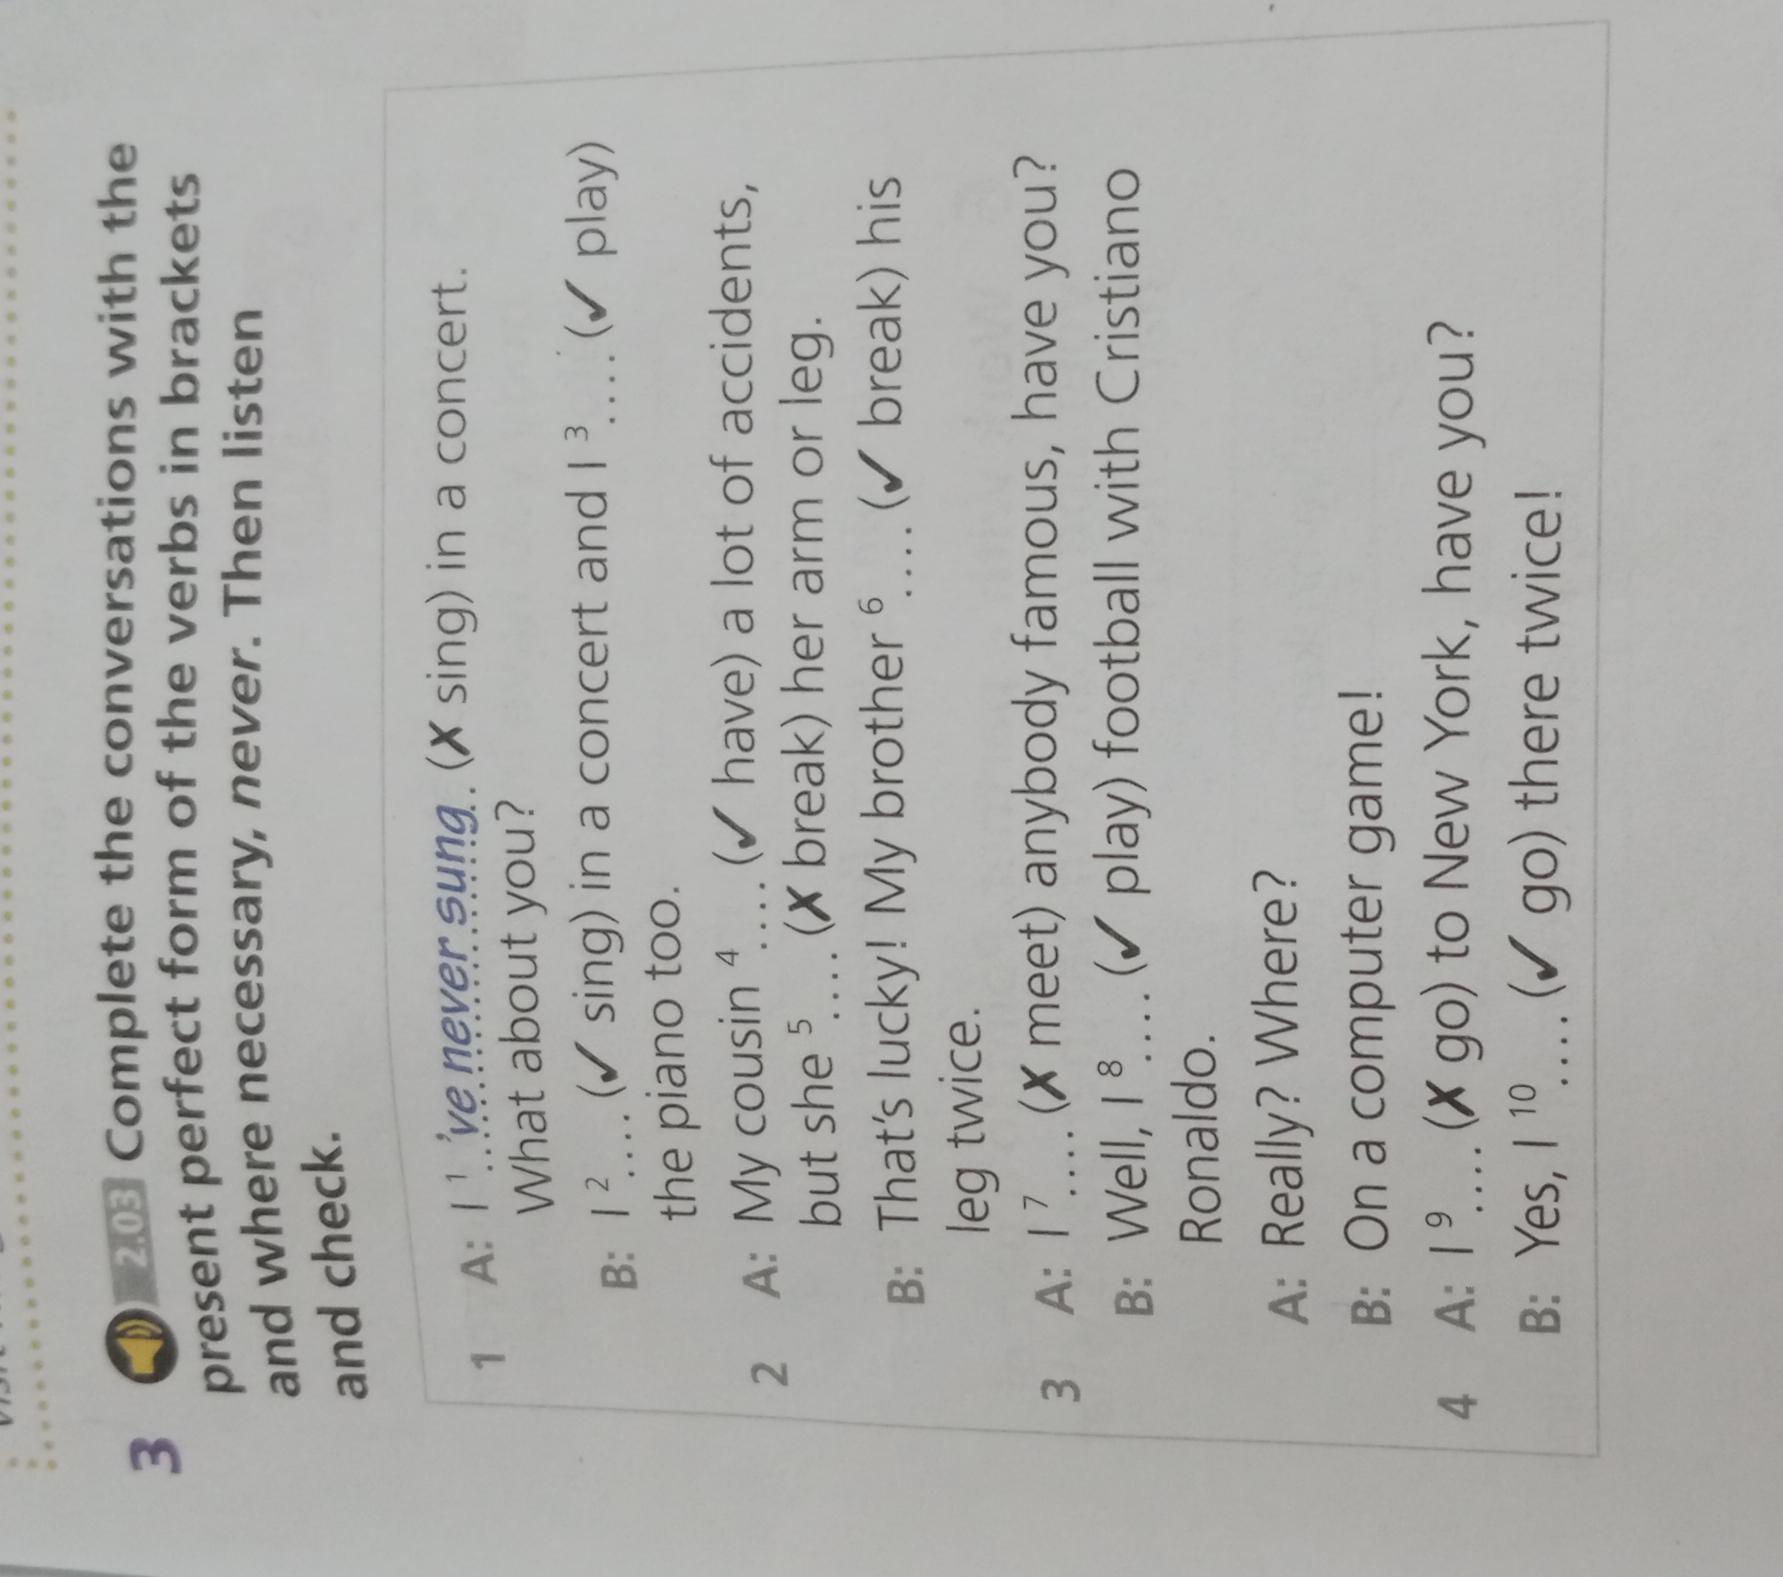 3 2.03 Complete the conversations with the
present perfect form of the verbs in brackets
and where necessary, never. Then listen
and check.
1 A: I 1 've never sung. (✗ sing) in a concert.
What about you?
B: I 2 .... (✓ sing) in a concert and I 3 .... (✓ play)
the piano too.
2 A: My cousin 4 .... (✓ have) a lot of accidents,
but she 5 .... (✗ break) her arm or leg.
B: That's lucky! My brother 6 .... (✓ break) his
leg twice.
3 A: I 7 .... (✗ meet) anybody famous, have you?
B: Well, I 8 .... (✓ play) football with Cristiano
Ronaldo.
A: Really? Where?
B: On a computer game!
4 A: I 9 .... (✗ go) to New York, have you?
B: Yes, I 10 .... (✓ go) there twice!